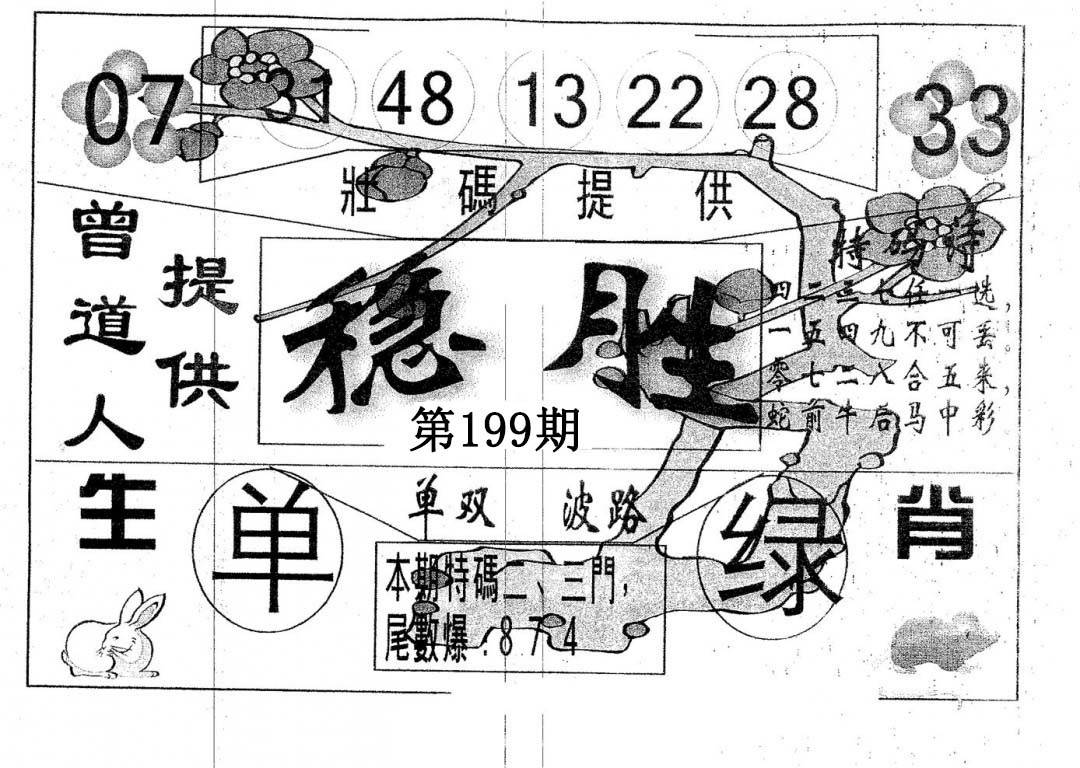 07 31 48 13 22 28 33
壯碼提供
曾道人
提供
特码诗
四二三七任一选，
一五四九不可丢。
零七二八合五来，
蛇前牛后马中彩
稳胜
第199期
生肖
单双 波路
单
绿
本期特碼二、三門，
尾數爆：874